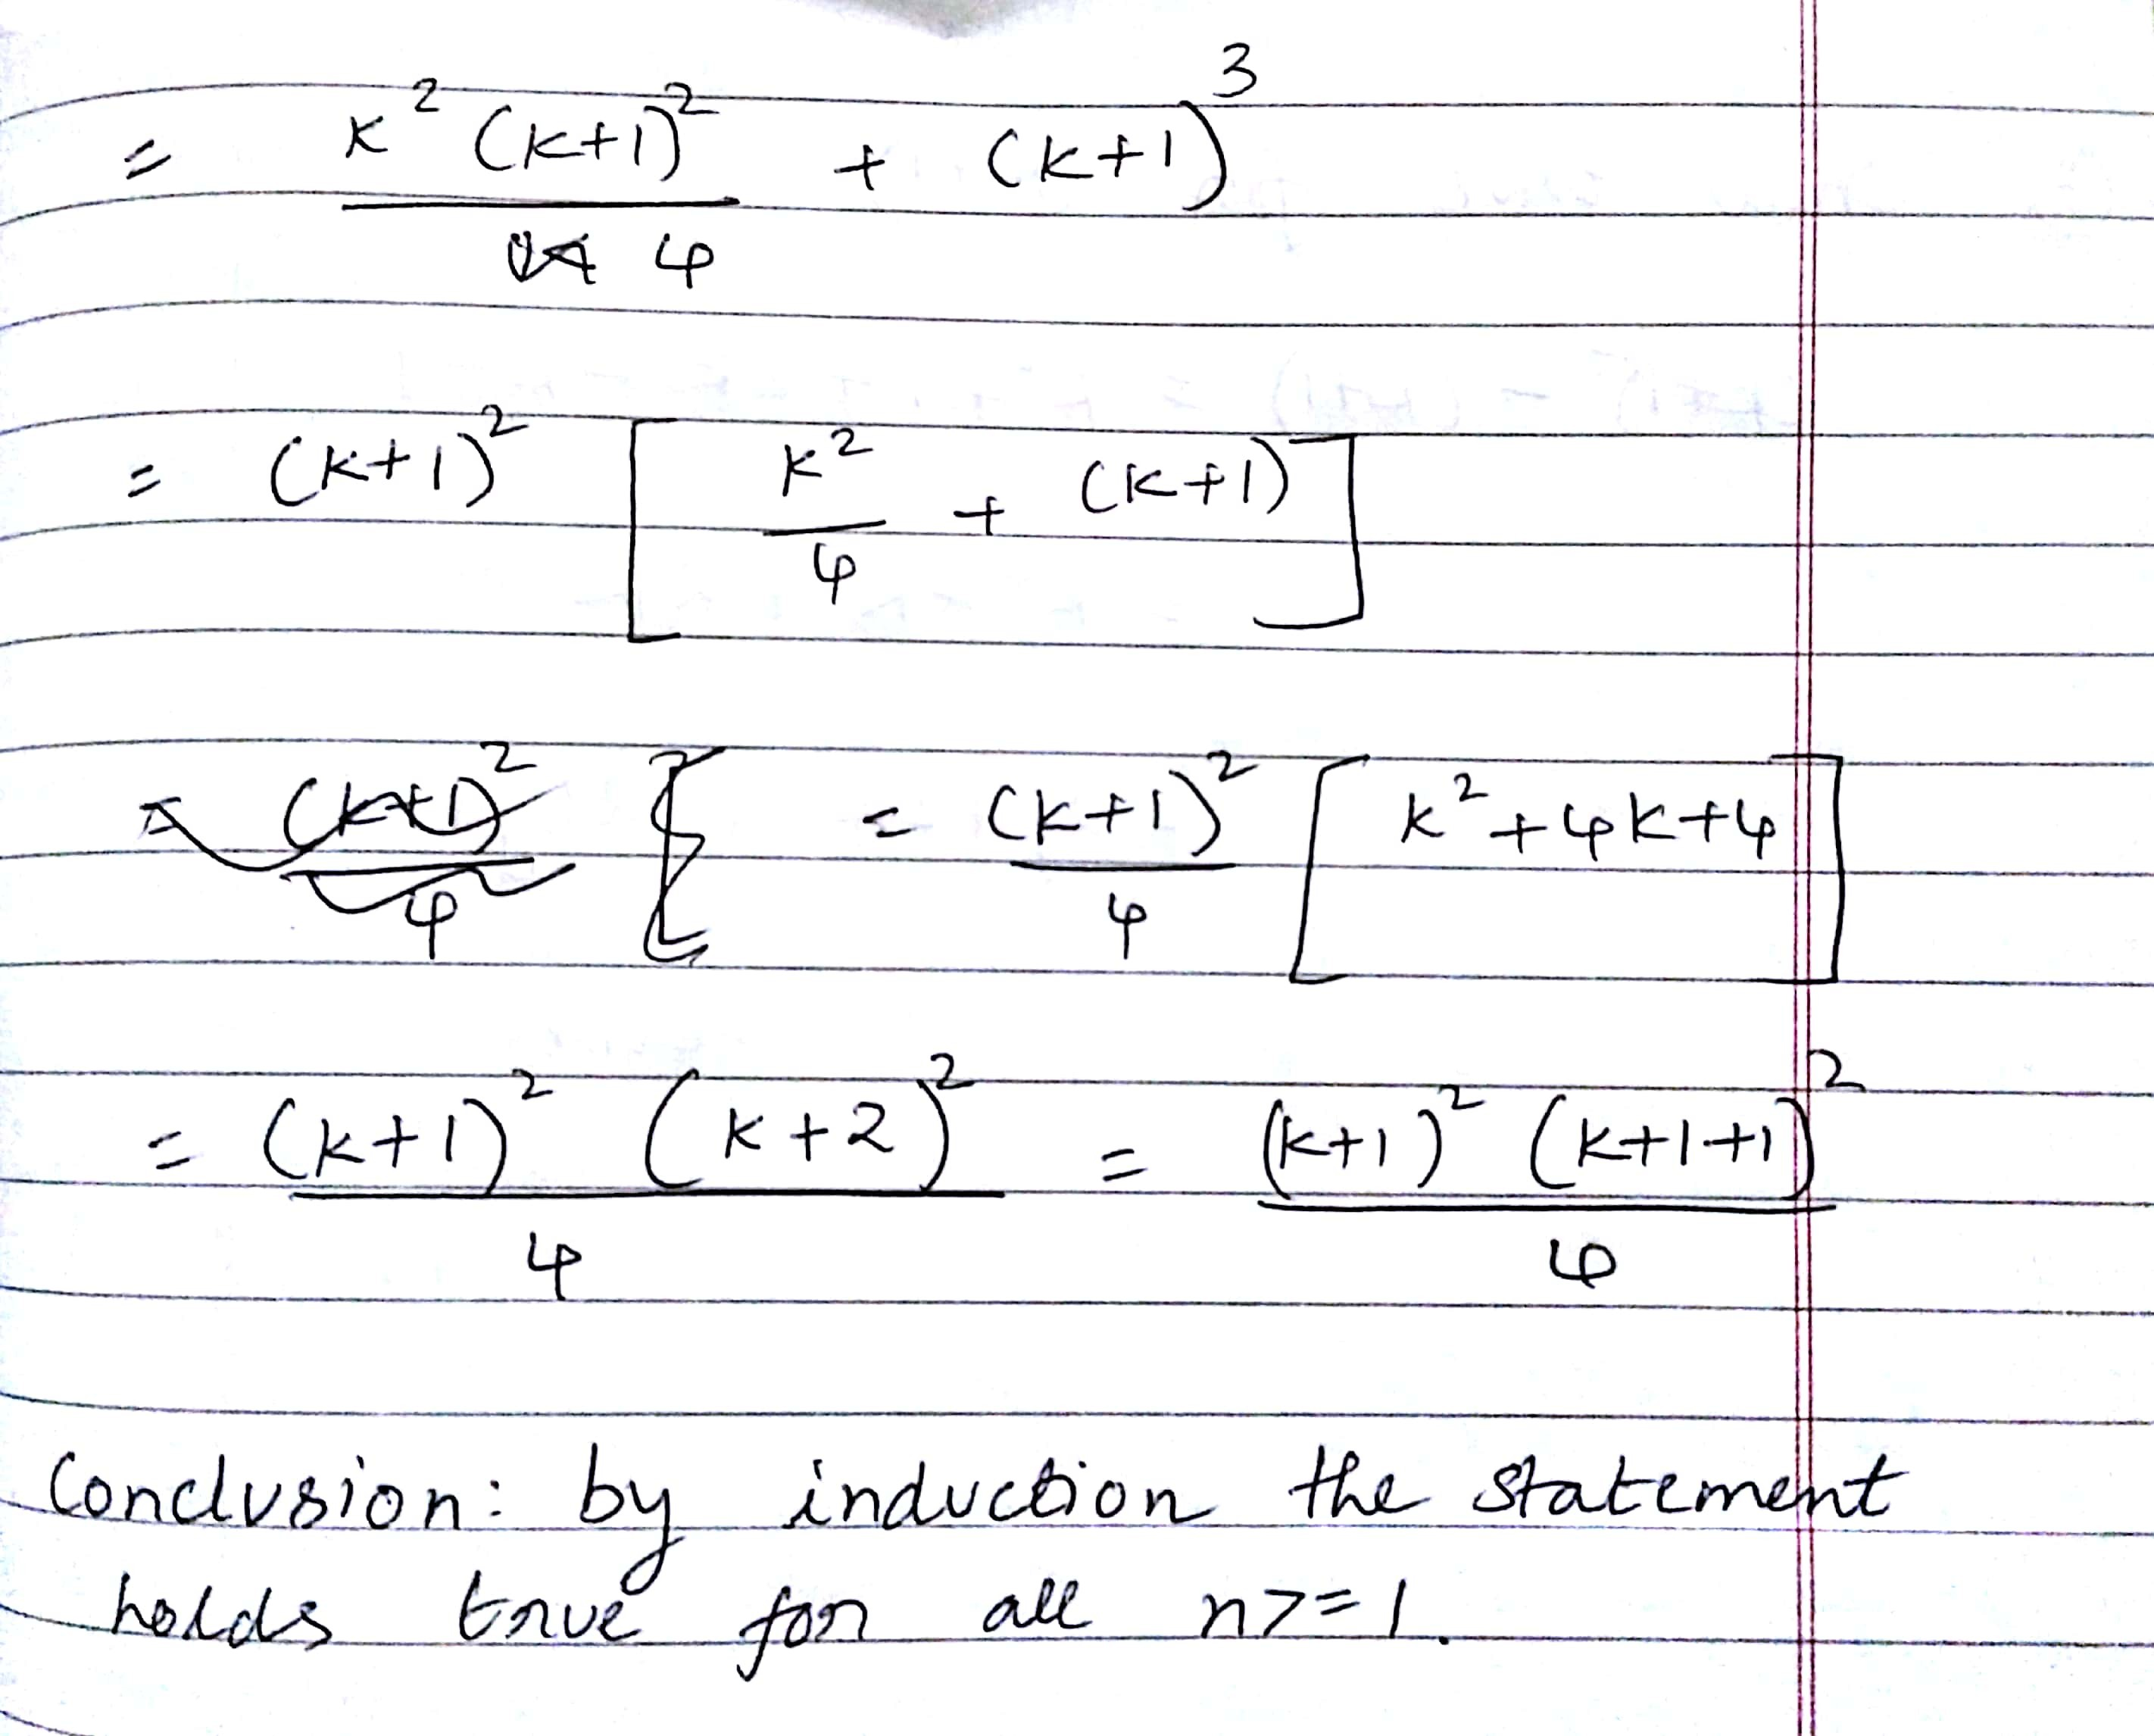 = k² (k+1)² / 4 + (k+1)³
= (k+1)² [ k²/4 + (k+1) ]
= (k+1)²/4 [ = (k+1)²/4 [ k²+4k+4 ]
= (k+1)² (k+2)² / 4 = (k+1)² (k+1+1)² / 4
Conclusion: by induction the statement
holds true for all n>=1.